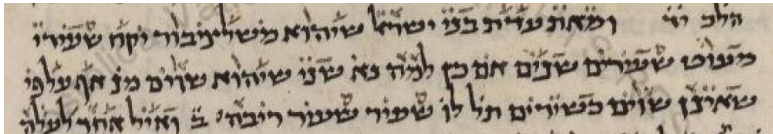 הלכ יי ומאת עדת בני ישראל שיהוא משלציבור יקח שעירי
מעוט שעירים שנים אם כן למה נא שני שיהוא שווים מנ אף עלפי
שאינן שוים כשירים תל לו שעיר שעיר ריבה ב ואיל אחד לעלה